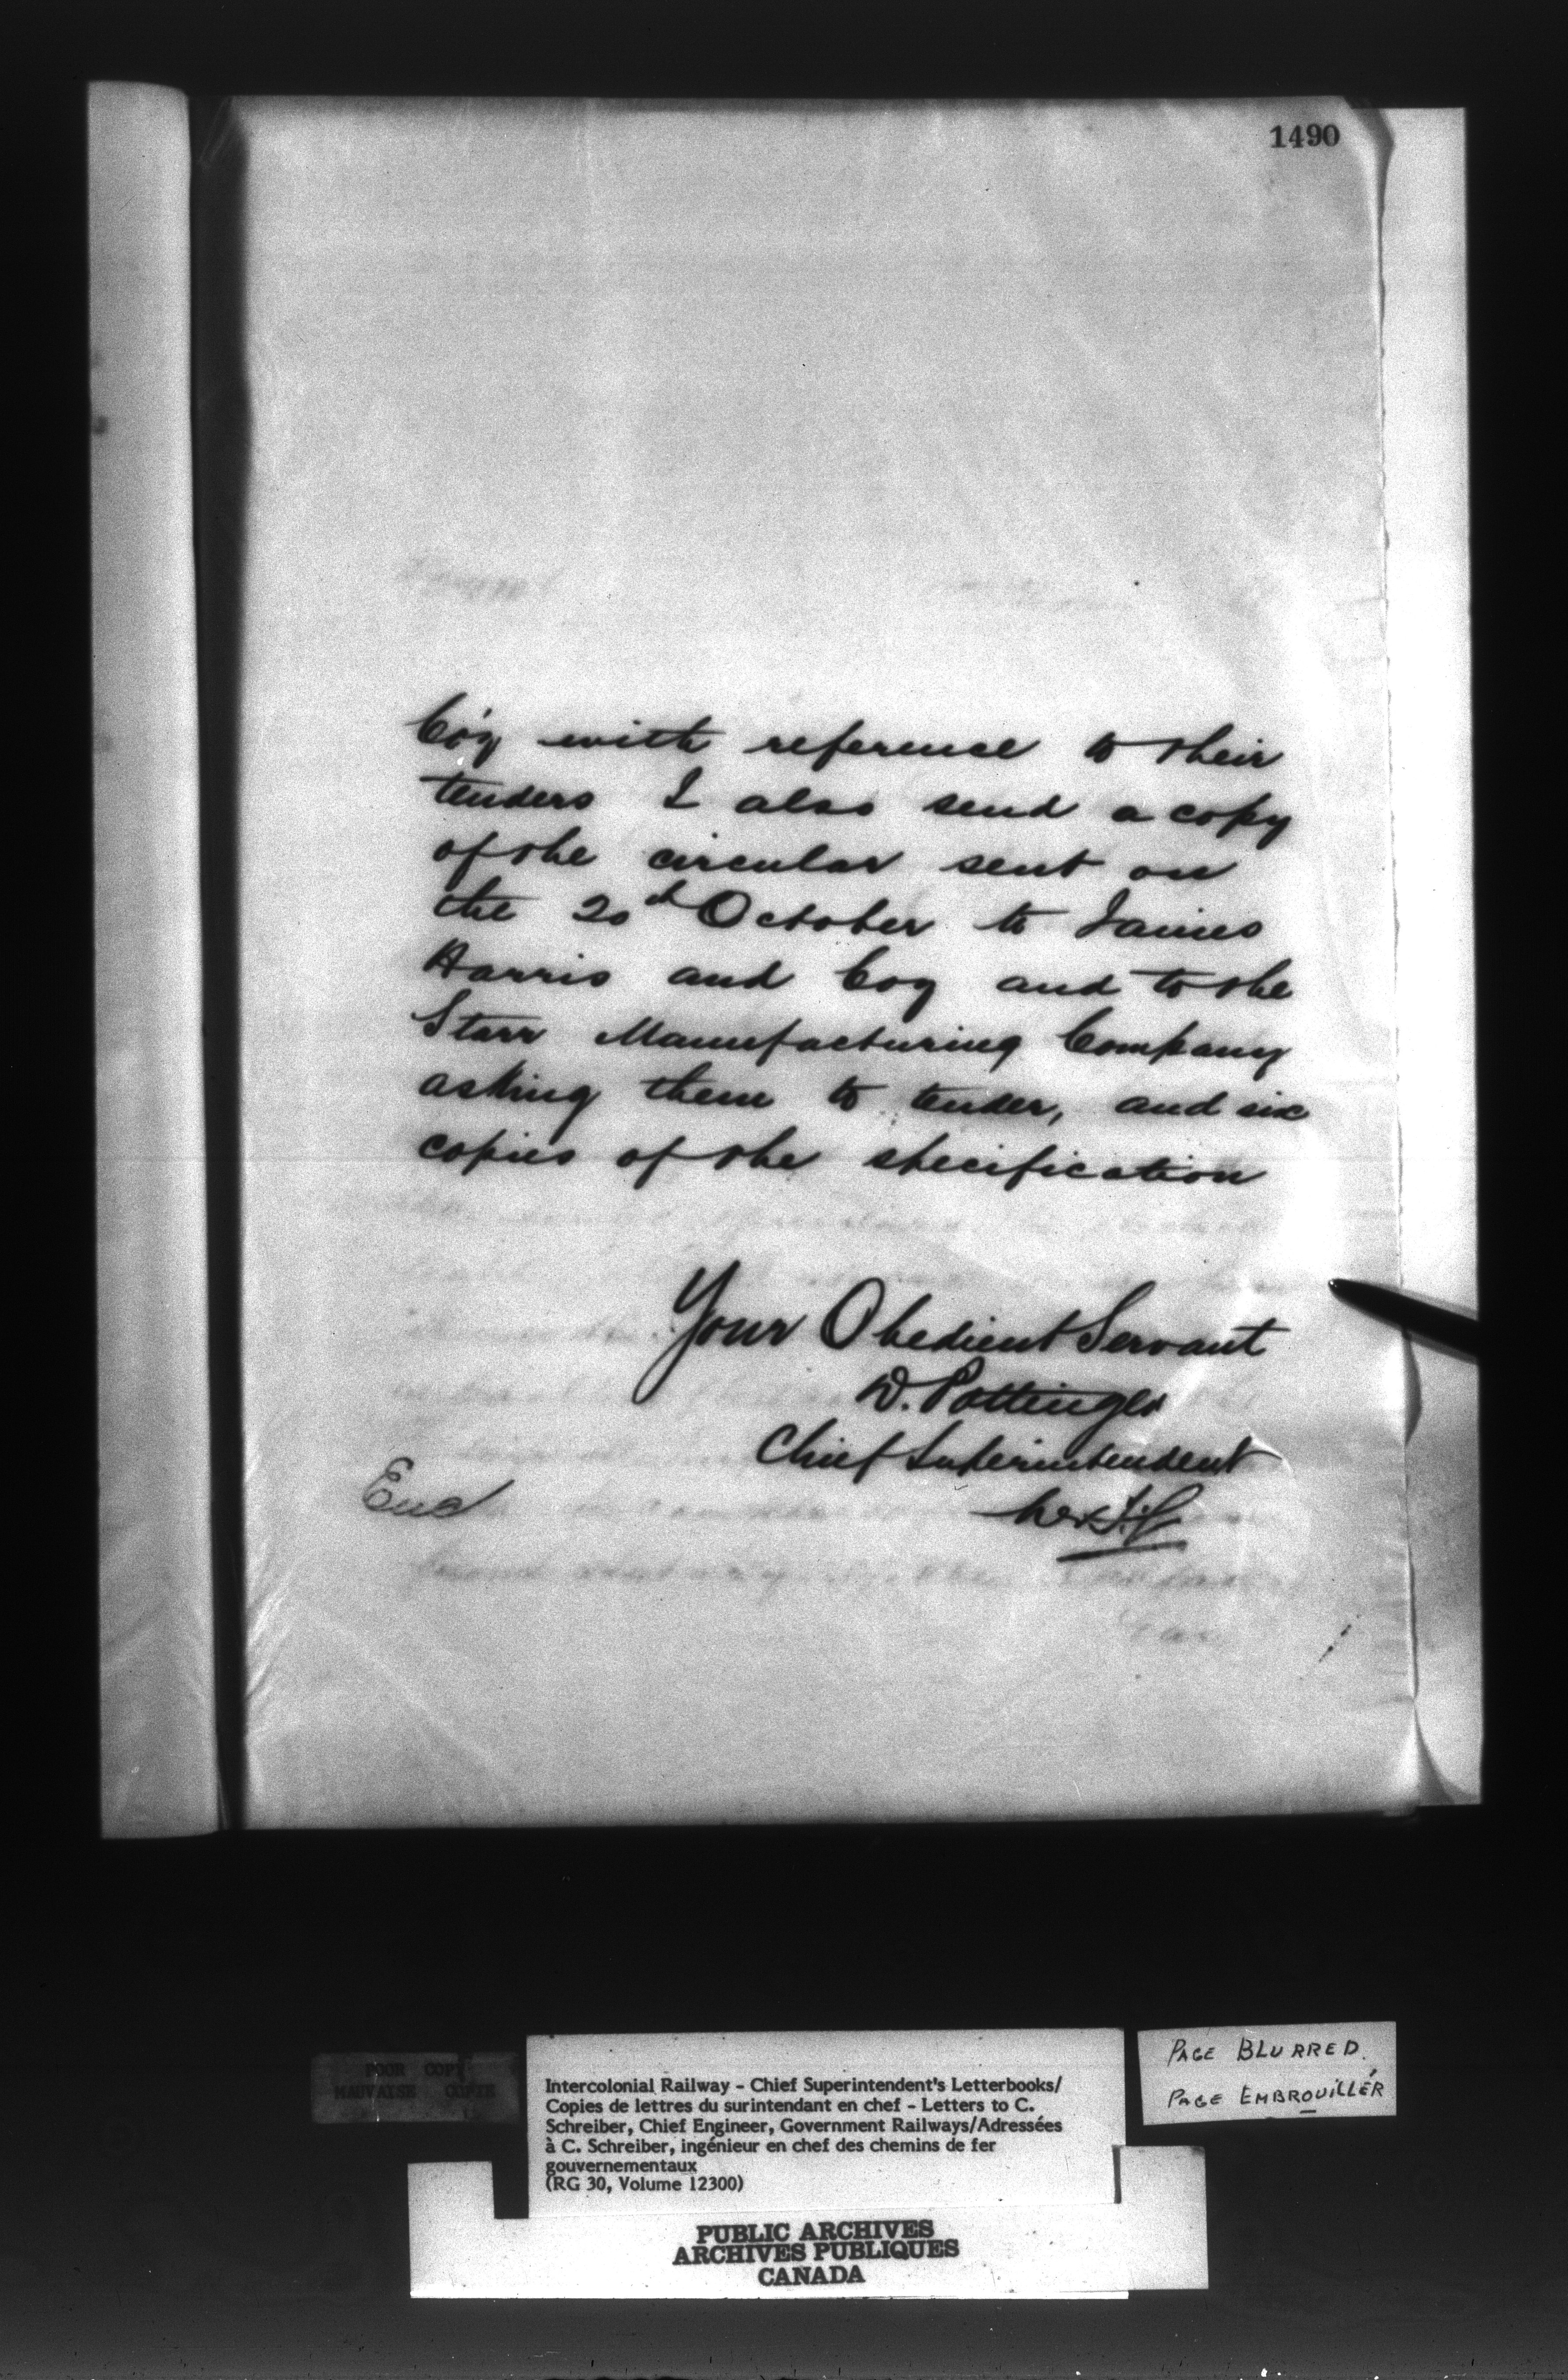 1490
Co'y with reference to their
tenders I also send a copy
of the circular sent on
the 20th October to James
Harris and Coy and to the
Starr Manufacturing Company
asking them to tender, and six
copies of the specification
Your Obedient Servant
D. Pottinger
Chief Superintendent
Encl
POOR COPY
MAUVAISE COPIE
Intercolonial Railway - Chief Superintendent's Letterbooks/
Copies de lettres du surintendant en chef - Letters to C.
Schreiber, Chief Engineer, Government Railways/Adressées
à C. Schreiber, ingénieur en chef des chemins de fer
gouvernementaux
(RG 30, Volume 12300)
PAGE BLURRED
PAGE EMBROUILLÉR
PUBLIC ARCHIVES
ARCHIVES PUBLIQUES
CANADA